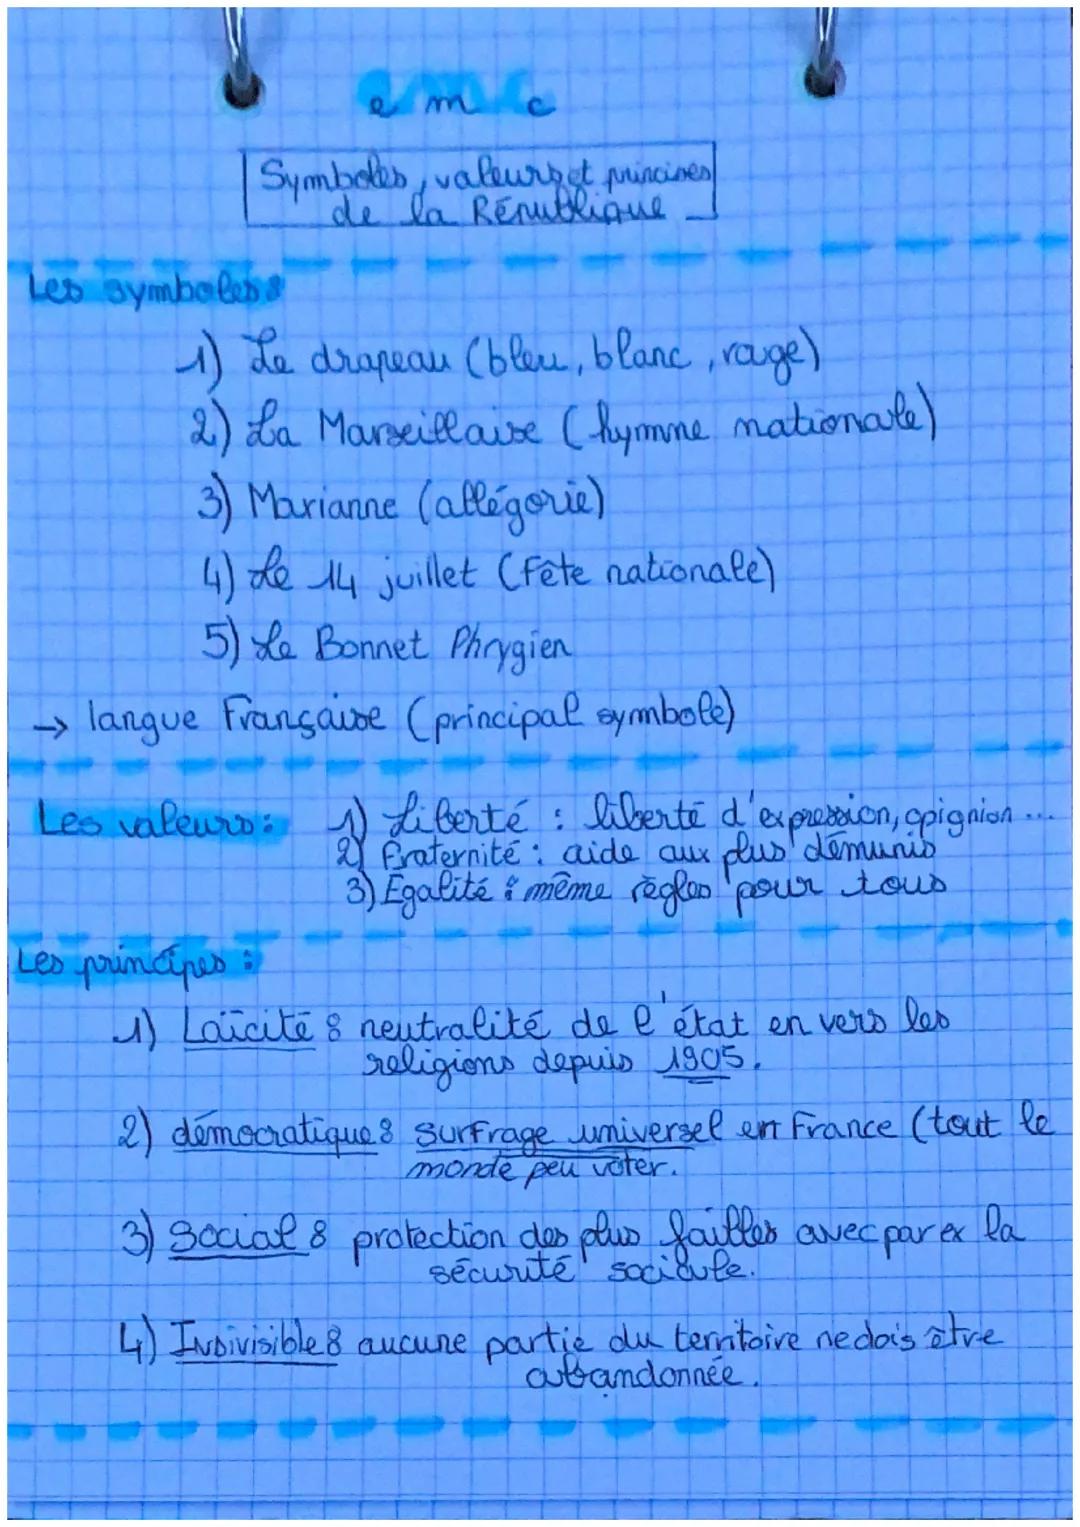 e m c
Symboles, valeurs et principes
de la République
Les symboles :
1) Le drapeau (bleu, blanc, rouge)
2) La Marseillaise (hymne nationale)
3) Marianne (allégorie)
4) Le 14 juillet (Fête nationale)
5) Le Bonnet Phrygien
→ langue Française (principal symbole)
Les valeurs : 1) Liberté : liberté d'expression, opignion ...
2) Fraternité : aide aux plus démunis
3) Égalité : même règles pour tous
Les principes :
1) Laïcité : neutralité de l'état en vers les
religions depuis 1905.
2) démocratique : surfrage universel en France (tout le
monde peu voter.
3) Social : protection des plus faibles avec par ex la
sécurité sociale.
4) Indivisible : aucune partie du territoire ne dois être
abandonnée.